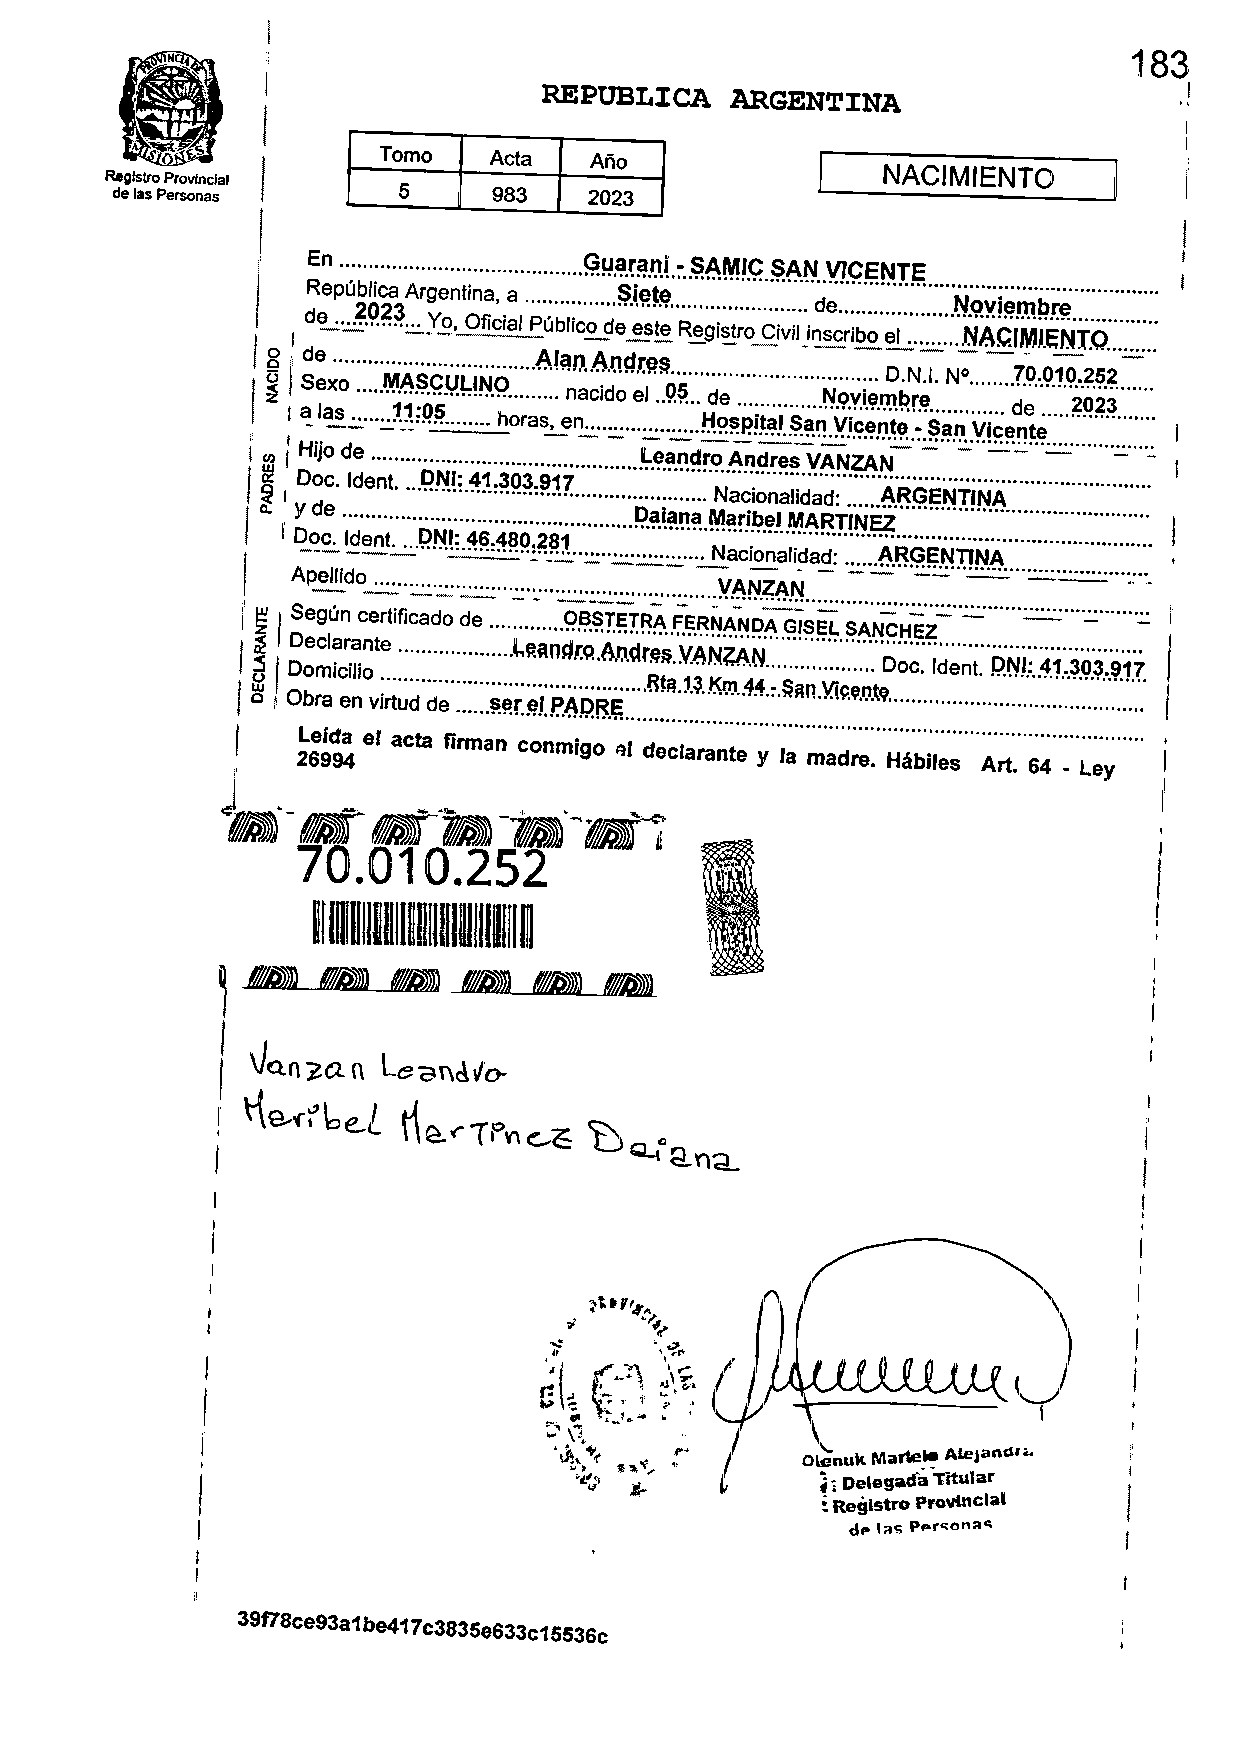 183
PROVINCIA DE
MISIONES
Registro Provincial
de las Personas
REPUBLICA ARGENTINA
Tomo Acta Año
5 983 2023
NACIMIENTO
En Guarani - SAMIC SAN VICENTE
República Argentina, a Siete de Noviembre
de 2023 Yo, Oficial Público de este Registro Civil inscribo el NACIMIENTO
NACIDO
de Alan Andres D.N.I. Nº 70.010.252
Sexo MASCULINO nacido el 05 de Noviembre de 2023
a las 11:05 horas, en Hospital San Vicente - San Vicente
PADRES
Hijo de Leandro Andres VANZAN
Doc. Ident. DNI: 41.303.917 Nacionalidad: ARGENTINA
y de Daiana Maribel MARTINEZ
Doc. Ident. DNI: 46.480.281 Nacionalidad: ARGENTINA
Apellido VANZAN
DECLARANTE
Según certificado de OBSTETRA FERNANDA GISEL SANCHEZ
Declarante Leandro Andres VANZAN Doc. Ident. DNI: 41.303.917
Domicilio Rta 13 Km 44 - San Vicente
Obra en virtud de ser el PADRE
Leida el acta firman conmigo el declarante y la madre. Hábiles Art. 64 - Ley
26994
70.010.252
Vanzan Leandro
Maribel Martinez Daiana
PROVINCIAL DE LAS
Olenuk Marlele Alejandra
Delegada Titular
Registro Provincial
de las Personas
39f78ce93a1be417c3835e633c15536c